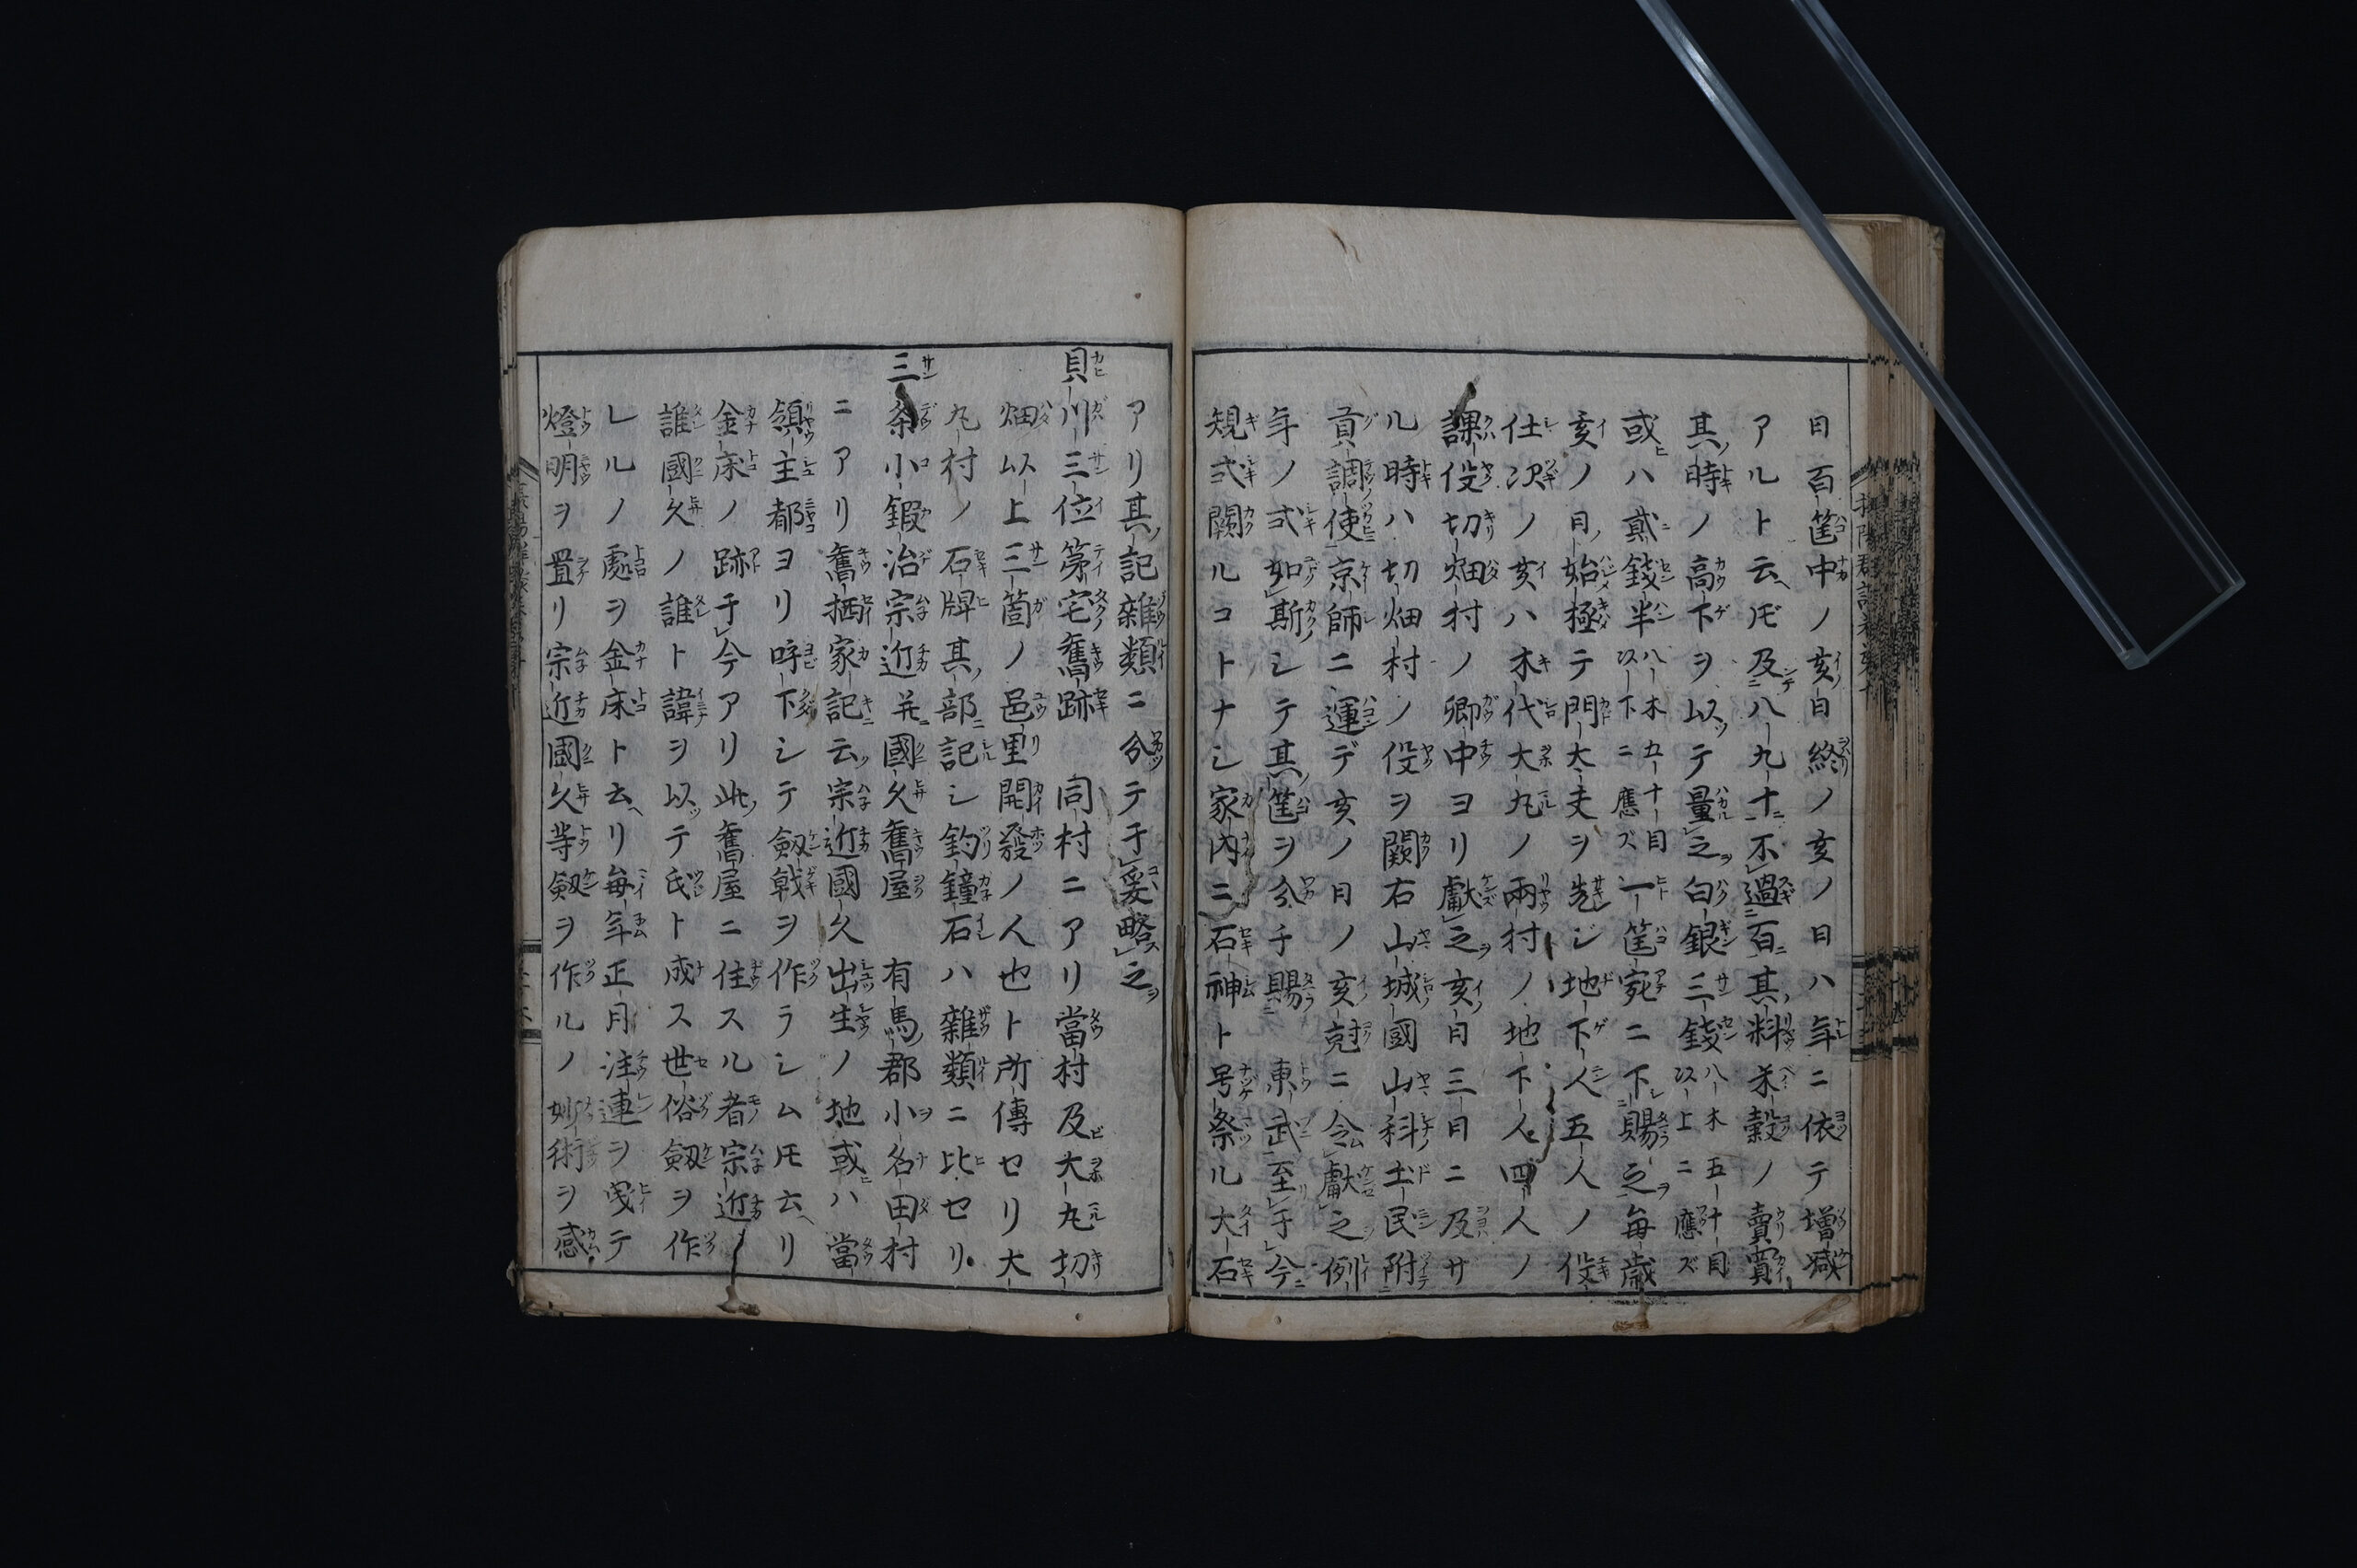 日百筐中ノ亥日終ノ亥ノ日ハ年ニ依テ増減
アルト云ヘ𪜈及八九十不過百其料米穀ノ賣買
其時ノ高下ヲ以テ量之白銀三錢八木五十目以上ニ應ズ
或ハ貳錢半八木五十目以下ニ應ズ一筐宛ニ下賜之毎歳
亥ノ月始極テ門大夫ヲ先ジ地下人五人ノ役
仕次ノ亥ハ木代大丸ノ兩村ノ地下人四人ノ
課役切畑村ノ郷中ヨリ獻之亥日三日ニ及サ
ル時ハ切畑村ノ役ヲ闕右山城國山科土民附
貢調使京師ニ運デ亥ノ日ノ亥尅ニ令獻之例
年ノ式如斯シテ其筐ヲ分チ賜東武至于今
規式闕ルコトナシ家内ニ石神ト号祭ル大石
アリ其記雜類ニ分テ于爰略之
貝川三位第宅舊跡 同村ニアリ當村及大丸切
畑以上三箇ノ邑里開發ノ人也ト所傳セリ大
丸村ノ石碑其部ニ記シ釣鐘石ハ雜類ニ比セリ
三条小鍛冶宗近并國久舊屋 有馬郡小名田村
ニアリ舊栖家記云宗近國久出生ノ地或ハ當
領主都ヨリ呼下シテ劔戟ヲ作ラシムト云ヘリ
金床ノ跡于今アリ此舊屋ニ住スル者宗近
誰國久ノ誰ト諱ヲ以テ氏ト成ス世俗劔ヲ作
レルノ處ヲ金床ト云ヘリ毎年正月注連ヲ曳テ
燈明ヲ置リ宗近國久等劔ヲ作ルノ妙術ヲ感